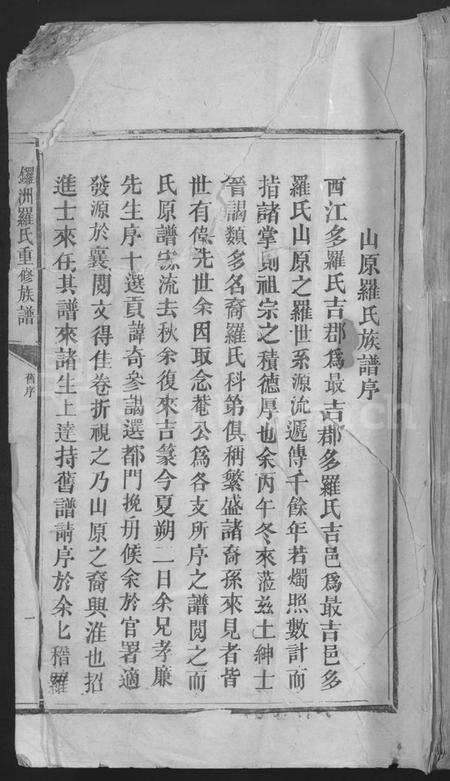 山原羅氏族譜序
西江多羅氏吉郡爲最吉郡多羅氏吉邑爲最吉邑多
羅氏山原之羅世系源流遞傳千餘年若燭照數計而
指諸掌則祖宗之積德厚也余丙午冬來蒞茲土紳士
晉謁類多名裔羅氏科第俱稱繁盛諸裔孫來見者皆
世有偉先世余因取念菴公爲各支所序之譜閱之而
氏原譜源流去秋余復來吉篆今夏朔二日余兄孝廉
先生序十選貢諱奇參謁選都門挽舟候余於官署適
發源於襄閱文得佳卷折視之乃山原之裔興淮也招
進士來任其譜來諸生上達持舊譜請序於余匕稽羅
鑼洲羅氏重修族譜
舊序
一